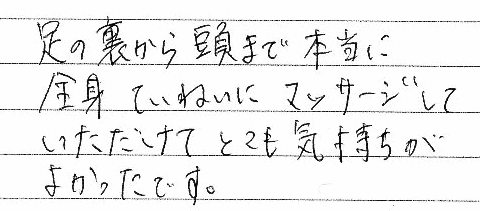 足の裏から頭まで本当に
全身ていねいにマッサージして
いただけてとても気持ちが
よかったです。